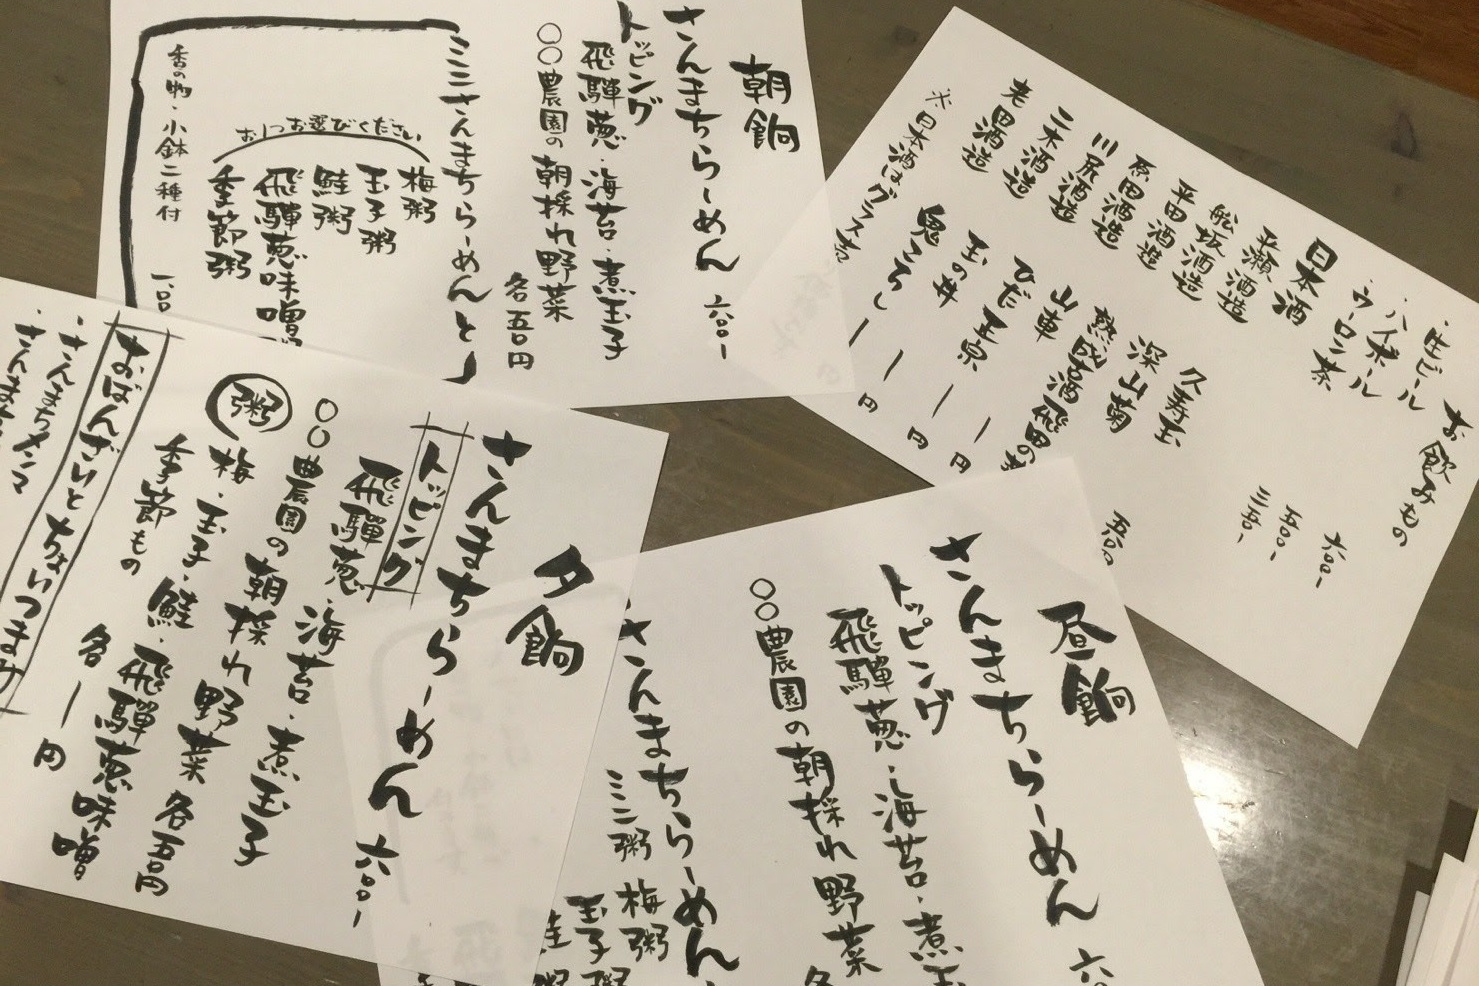 朝餉
さんまちらーめん 六〇〇ー
トッピング
飛騨葱・海苔・煮玉子
〇〇農園の朝採れ野菜
各五〇円
ミニさんまちらーめんと
梅粥
玉子粥
鮭粥
飛騨葱味噌
季節粥
お一つお選びください
香の物・小鉢二種付
お飲みもの
・生ビール 六〇〇ー
・ハイボール 五〇〇ー
・ウーロン茶 三五〇ー
日本酒
平瀬酒造 久寿玉
舩坂酒造 深山菊
平田酒造
原田酒造 山車
川尻酒造 ひだ正宗
二木酒造 玉の井
老田酒造 鬼ころし
※日本酒はグラス売 ー円
五〇〇
夕餉
さんまちらーめん 六〇〇ー
トッピング
飛騨葱・海苔・煮玉子
〇〇農園の朝採れ野菜 各五〇円
粥
梅・玉子・鮭・飛騨葱味噌
季節もの 各ー円
おばんざいとちょいつまみ
・さんまちメンマ
昼餉
さんまちらーめん
トッピング
飛騨葱・海苔・煮玉
〇〇農園の朝採れ野菜
さんまちらーめん
ミニ粥 梅粥
玉子粥